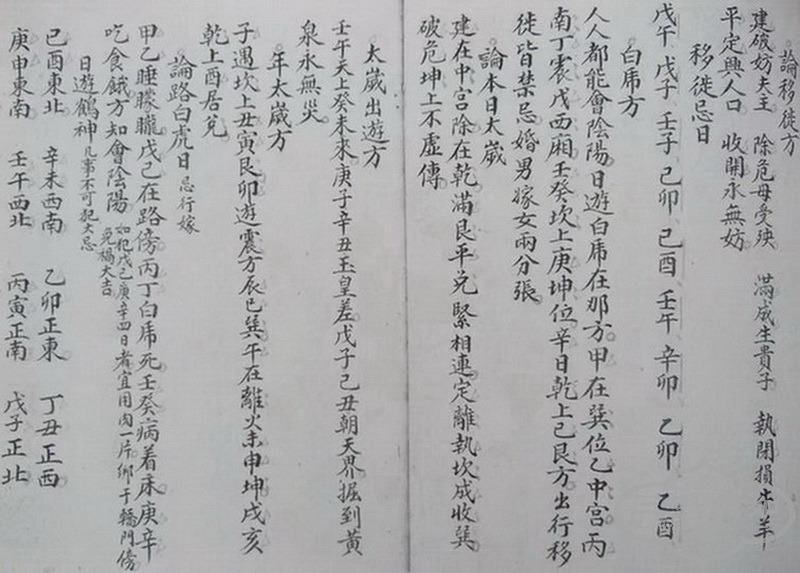 論移徙方
建破妨夫主　除危母受殃　滿成生貴子　執閉損牛羊
平定興人口　收開永無妨
移徙忌日
戊午　戊子　壬子　己卯　己酉　壬午　辛卯　乙卯　乙酉
白虎方
人人都能會陰陽日遊白虎在那方甲在巽位乙中宮丙
南丁震戊西廂壬癸坎上庚坤位辛日乾上己艮方出行移
徙皆禁忌婚男嫁女兩分張
論本日太歲
建在中宮除在乾滿艮平兌緊相連定離執坎成收巽
破危坤上不虛傳
太歲出遊方
壬午天上癸未來庚子辛丑玉皇差戊子己丑朝天界掘到黃
泉永無災
年太歲方
子遇坎上丑寅艮卯遊震方辰巳巽午在離火未申坤戌亥
乾上酉居兌
論路白虎日　忌行嫁
甲乙睡朦朧戊己在路傍丙丁白虎死壬癸病着床庚辛
吃食餓方知會陰陽　如犯戊己庚辛四日者宜用肉一片綁于轎門傍
免禍大吉
日遊鶴神　凡事不可犯大忌
己酉東北　辛未西南　乙卯正東　丁丑正西
庚申東南　壬午西北　丙寅正南　戊子正北